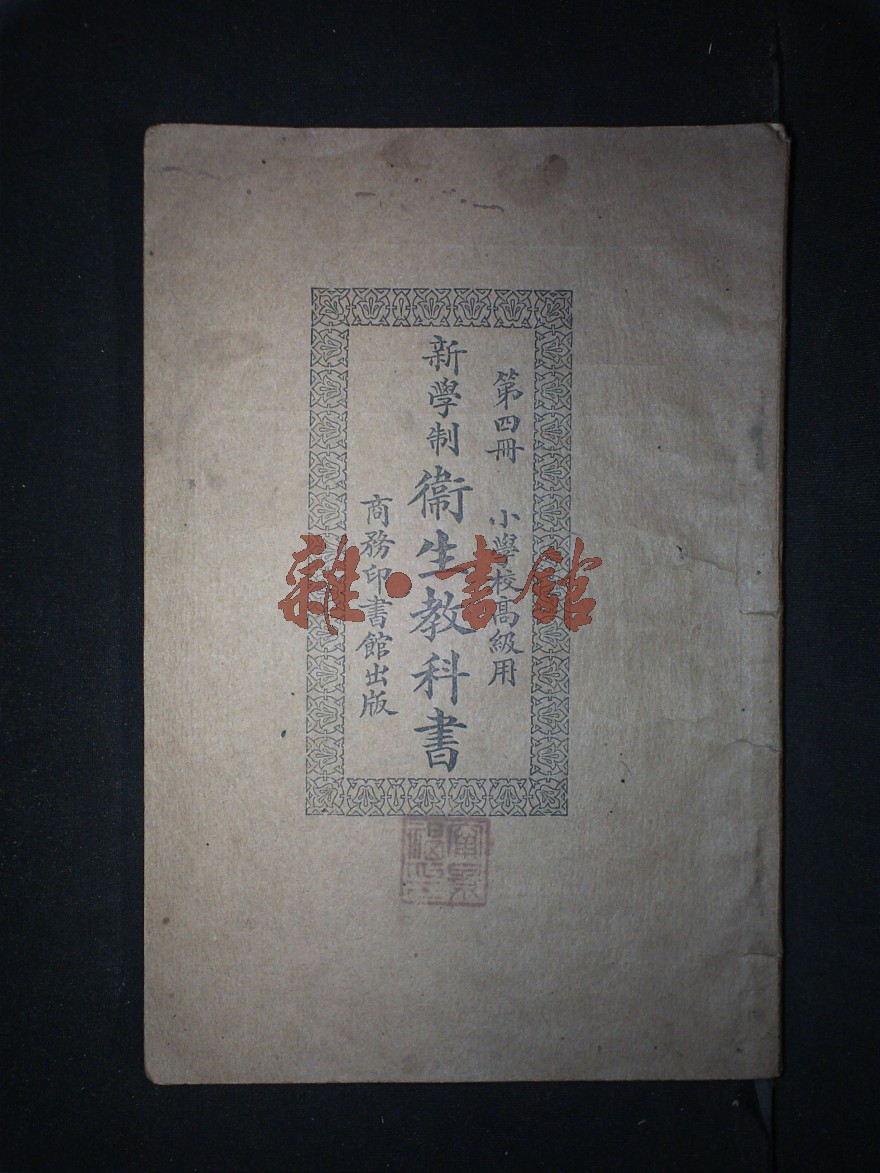 第四冊 小學校高級用
新學制衞生教科書
商務印書館出版
雜·書館